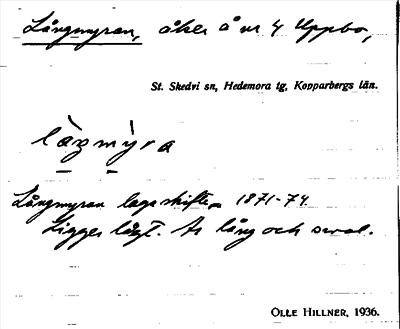 Långmyran, åker å nr 4 Uppbo,
St. Skedvi sn, Hedemora tg, Kopparbergs län.
làŋmỳra
Långmyran laga skifte 1871-74.
Ligger lågt. Är lång och smal.
OLLE HILLNER, 1936.